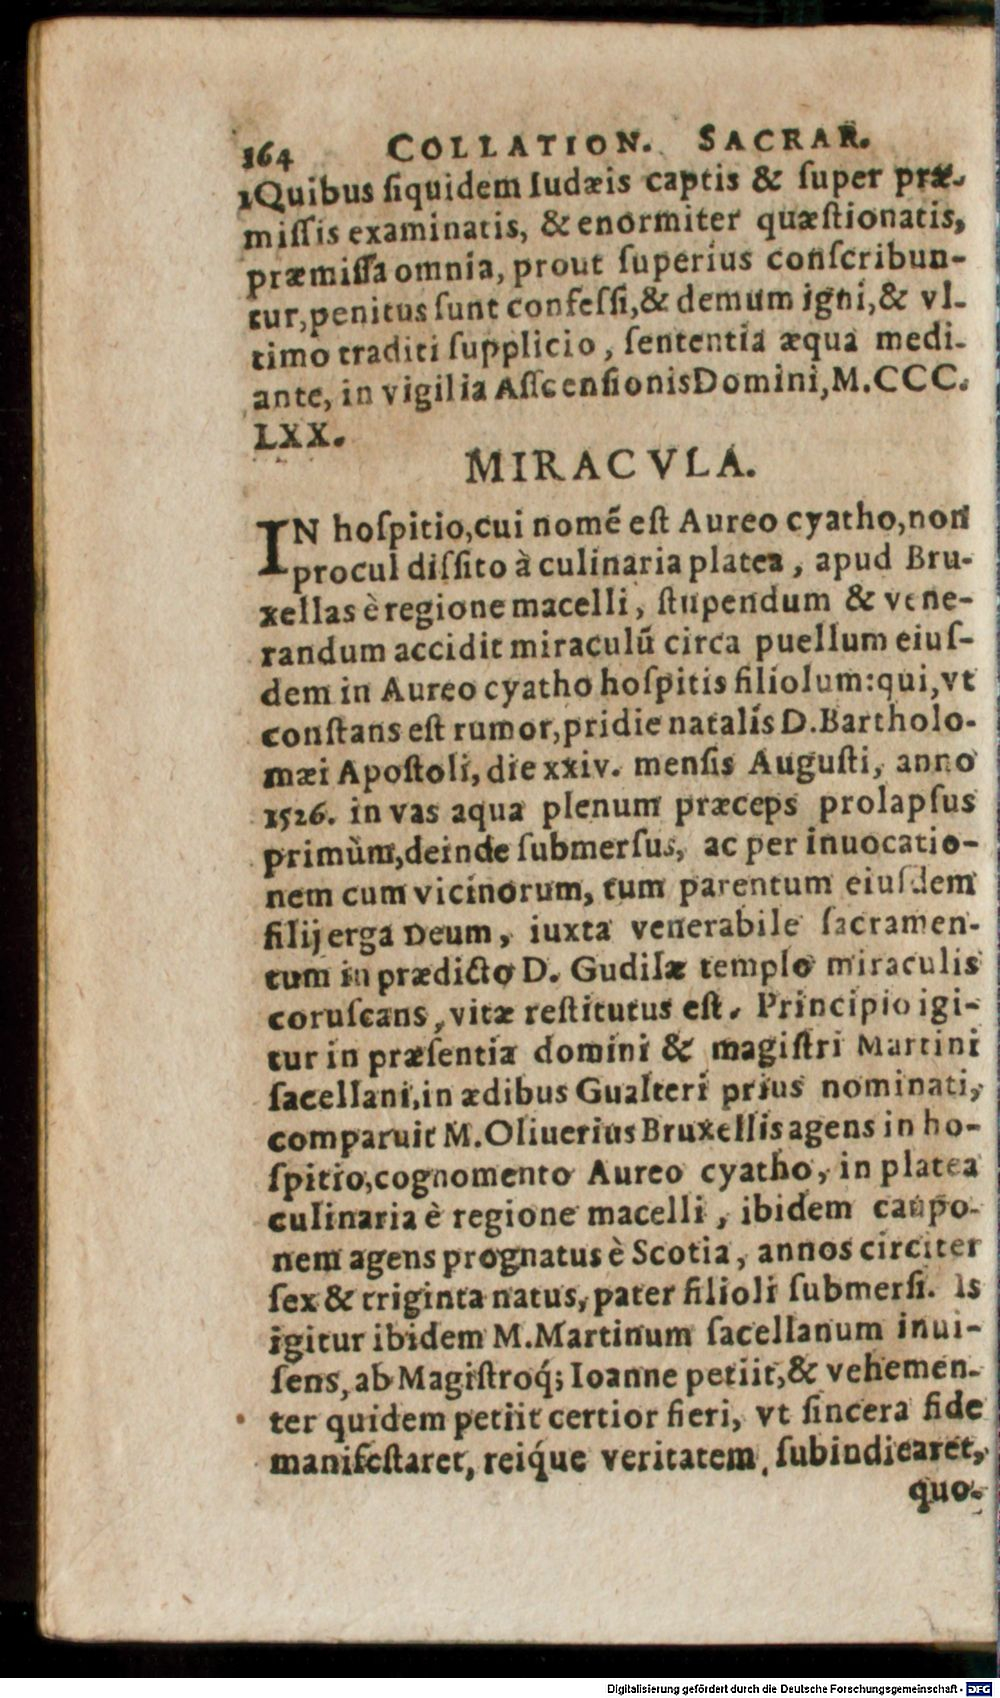 164 COLLATION. SACRAR.
1Quibus ſiquidem Iudæis captis & ſuper præ-
miſſis examinatis, & enormiter quæſtionatis,
præmiſſa omnia, prout ſuperius conſcribun-
tur, penitus ſunt confeſſi, & demum igni, & vl-
timo traditi ſupplicio, ſententia æqua medi-
ante, in vigilia Aſſcenſionis Domini, M.CCC.
LXX.
MIRACVLA.
IN hoſpitio, cui nomẽ eſt Aureo cyatho, non
procul diſſito à culinaria platea, apud Bru-
xellas è regione macelli, ſtupendum & vene-
randum accidit miraculũ circa puellum eiuſ-
dem in Aureo cyatho hoſpitis filiolum: qui, vt
conſtans eſt rumor, pridie natalis D. Bartholo-
mæi Apoſtoli, die xxiv. menſis Auguſti, anno
1526. in vas aqua plenum præceps prolapſus
primùm, deinde ſubmerſus, ac per inuocatio-
nem cum vicinorum, tum parentum eiuſdem
filij erga Deum, iuxta venerabile ſacramen-
tum in prædicto D. Gudilæ templo miraculis
coruſcans, vitæ reſtitutus eſt. Principio igi-
tur in præſentia domini & magiſtri Martini
ſacellani, in ædibus Gualteri prius nominati,
comparuit M. Oliuerius Bruxellis agens in ho-
ſpitio, cognomento Aureo cyatho, in platea
culinaria è regione macelli, ibidem caupo-
nem agens prognatus è Scotia, annos circiter
ſex & triginta natus, pater filioli ſubmerſi. Is
igitur ibidem M. Martinum ſacellanum inui-
ſens, ab Magiſtroq́; Ioanne petiit, & vehemen-
ter quidem petiit certior fieri, vt ſincera fide
manifeſtaret, reiq́ue veritatem, ſubindicaret,
quo-
Digitalisierung gefördert durch die Deutsche Forschungsgemeinschaft - DFG